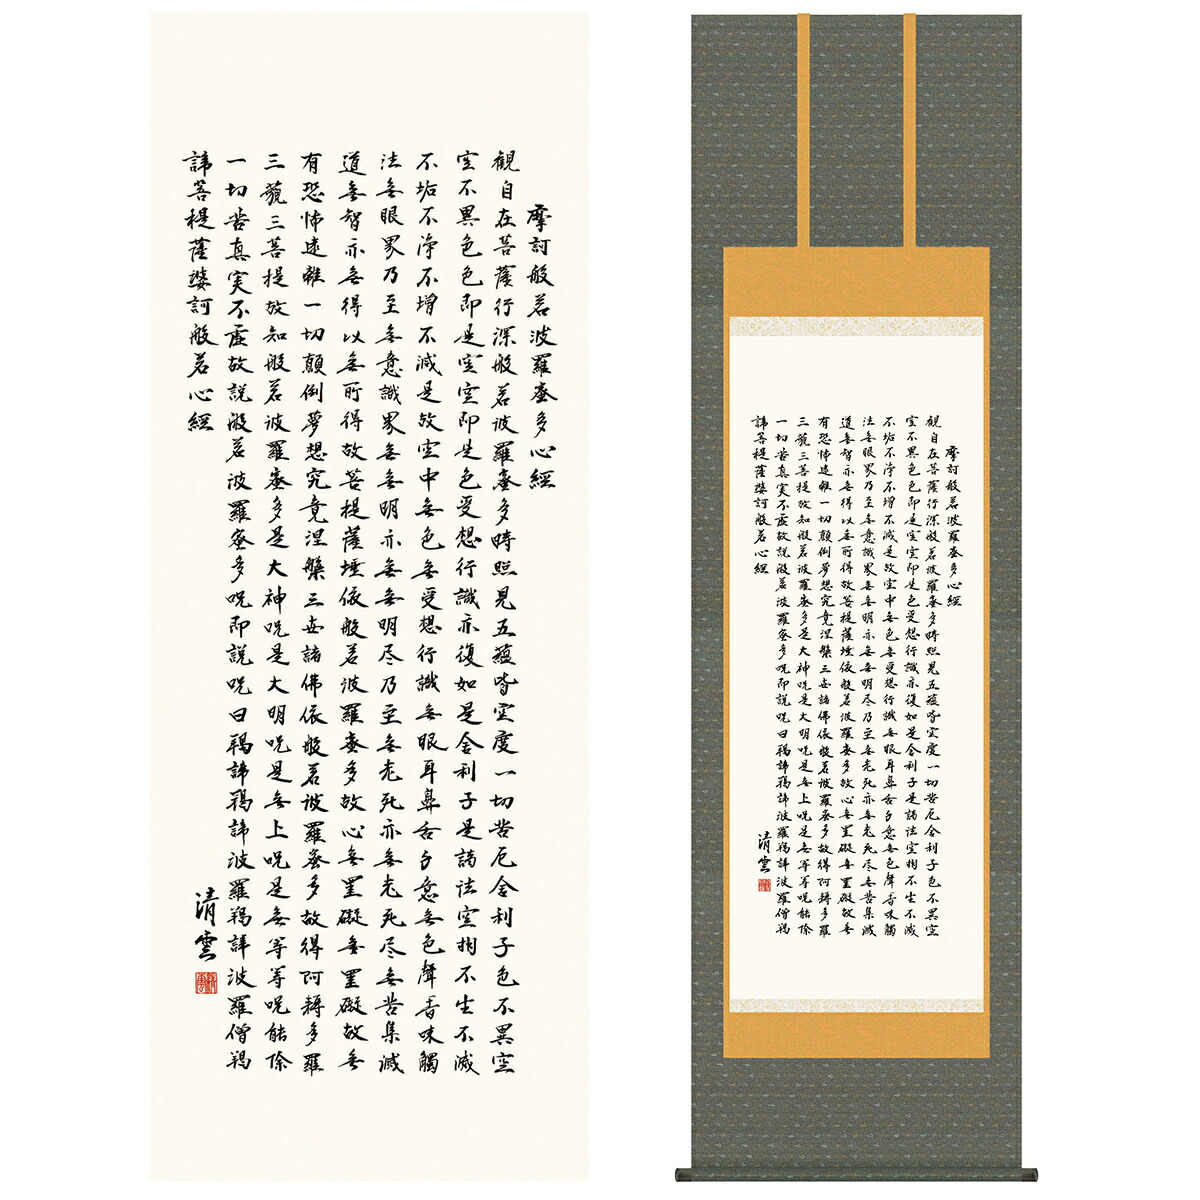 摩訶般若波羅蜜多心經
観自在菩薩行深般若波羅蜜多時照見五蘊皆空度一切苦厄舎利子色不異空
空不異色色即是空空即是色受想行識亦復如是舎利子是諸法空相不生不滅
不垢不浄不増不減是故空中無色無受想行識無眼耳鼻舌身意無色聲香味觸
法無眼界乃至無意識界無無明亦無無明尽乃至無老死亦無老死尽無苦集滅
道無智亦無得以無所得故菩提薩埵依般若波羅蜜多故心無罣礙無罣礙故無
有恐怖遠離一切顛倒夢想究竟涅槃三世諸佛依般若波羅蜜多故得阿耨多羅
三藐三菩提故知般若波羅蜜多是大神呪是大明呪是無上呪是無等等呪能除
一切苦真実不虚故説般若波羅蜜多呪即説呪曰羯諦羯諦波羅羯諦波羅僧羯
諦菩提薩婆訶般若心經
清雲
摩訶般若波羅蜜多心經
観自在菩薩行深般若波羅蜜多時照見五蘊皆空度一切苦厄舎利子色不異空
空不異色色即是空空即是色受想行識亦復如是舎利子是諸法空相不生不滅
不垢不浄不増不減是故空中無色無受想行識無眼耳鼻舌身意無色聲香味觸
法無眼界乃至無意識界無無明亦無無明尽乃至無老死亦無老死尽無苦集滅
道無智亦無得以無所得故菩提薩埵依般若波羅蜜多故心無罣礙無罣礙故無
有恐怖遠離一切顛倒夢想究竟涅槃三世諸佛依般若波羅蜜多故得阿耨多羅
三藐三菩提故知般若波羅蜜多是大神呪是大明呪是無上呪是無等等呪能除
一切苦真実不虚故説般若波羅蜜多呪即説呪曰羯諦羯諦波羅羯諦波羅僧羯
諦菩提薩婆訶般若心經
清雲